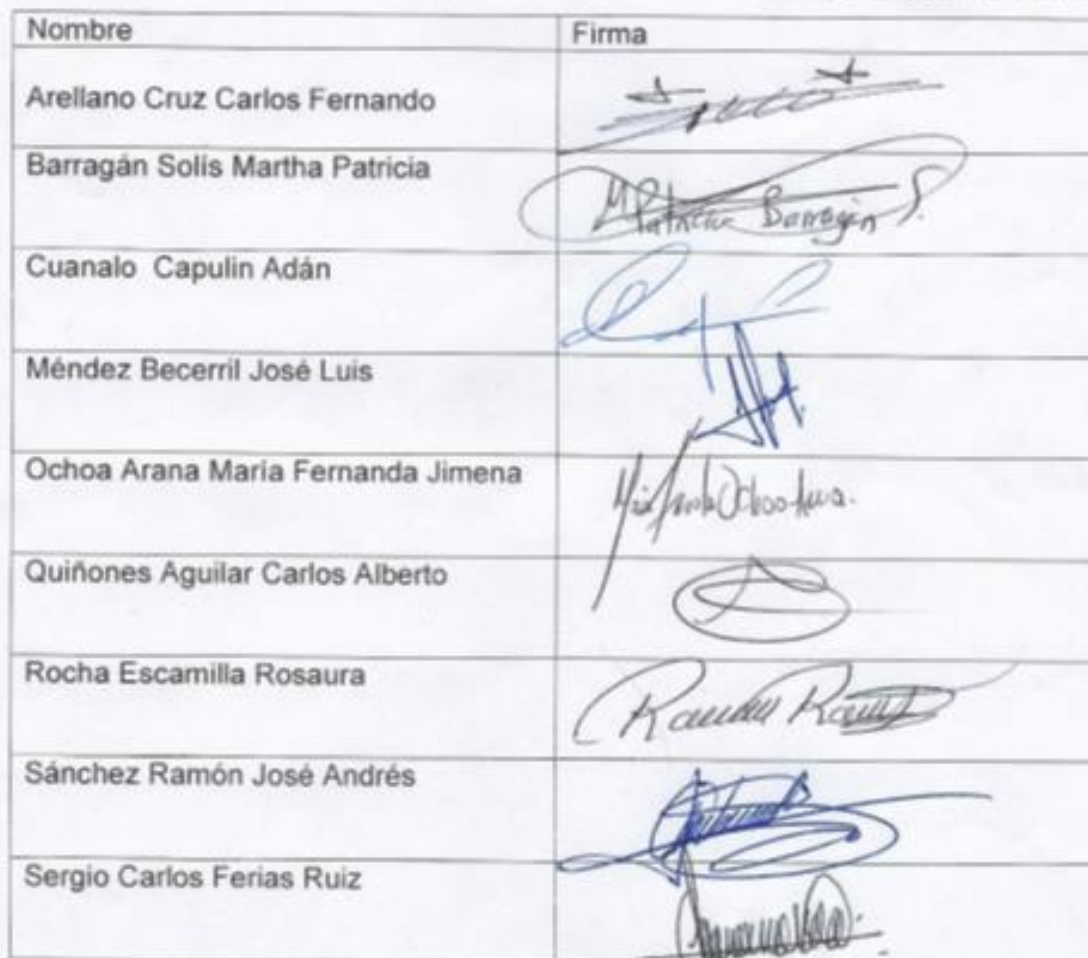 Nombre Firma
Arellano Cruz Carlos Fernando
Barragán Solís Martha Patricia
M Patricia Barragán S.
Cuanalo Capulin Adán
Méndez Becerril José Luis
Ochoa Arana María Fernanda Jimena
Ochoa
Quiñones Aguilar Carlos Alberto
Rocha Escamilla Rosaura
Sánchez Ramón José Andrés
Sergio Carlos Ferias Ruiz